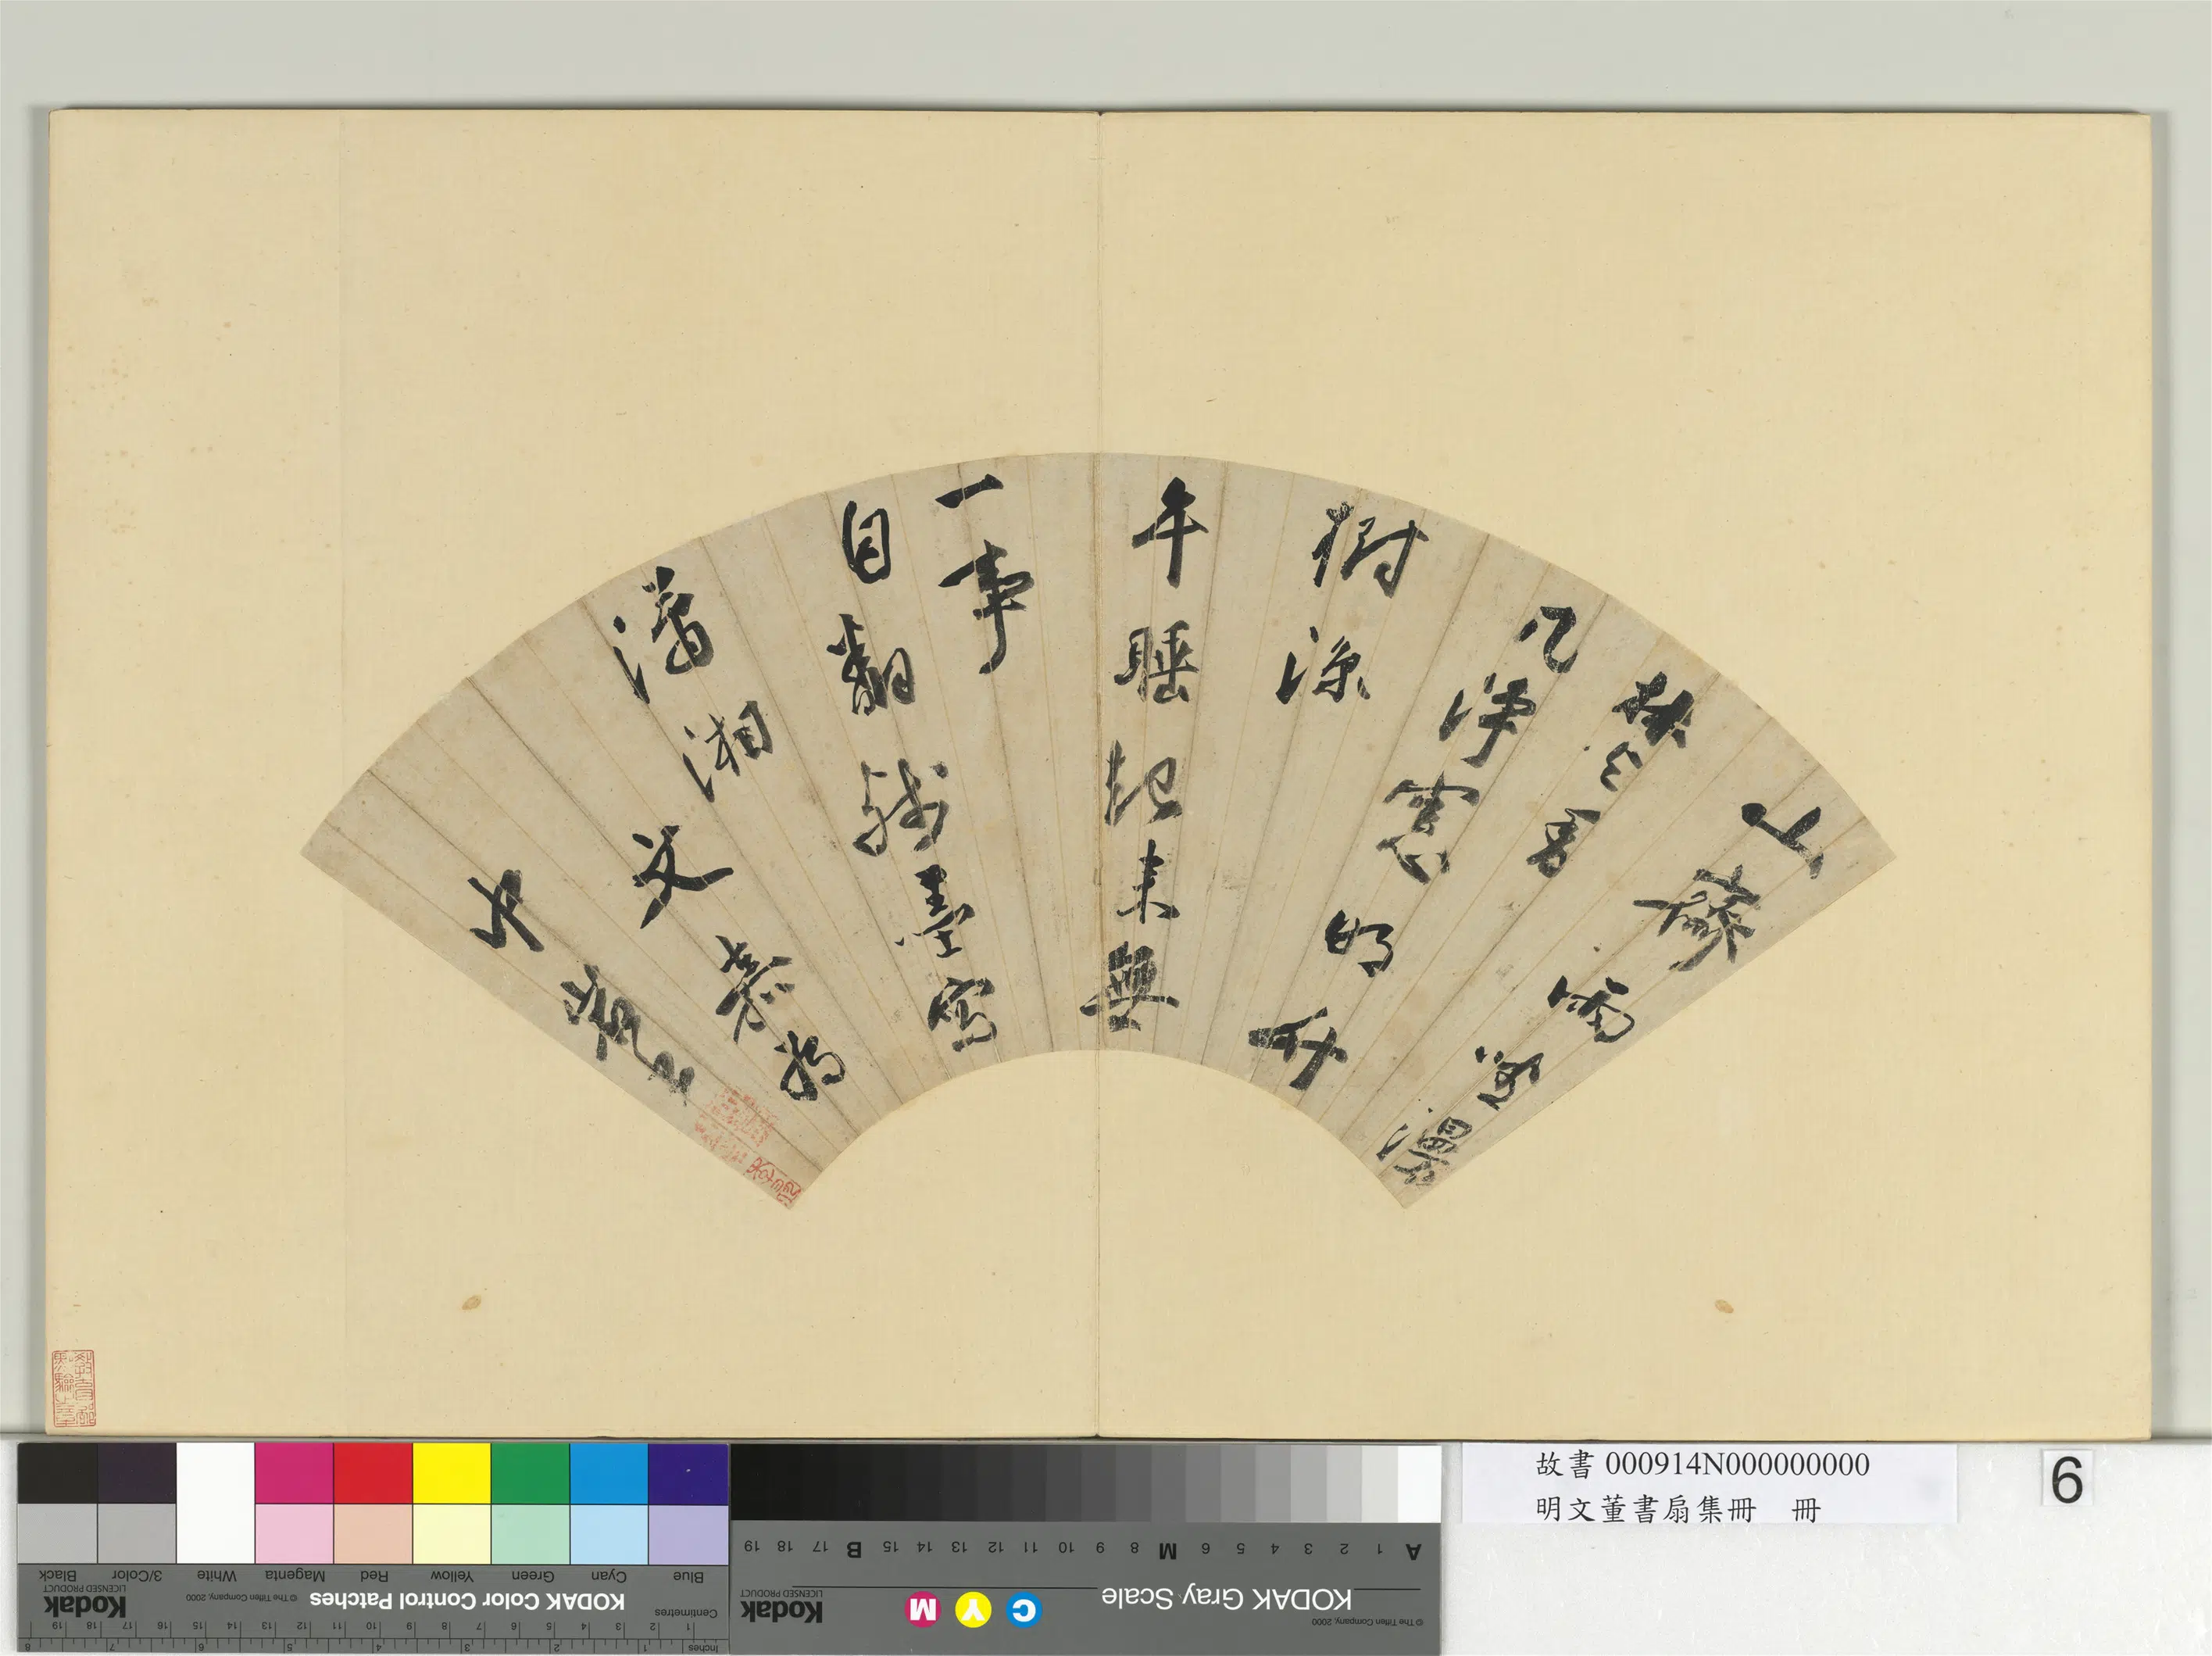 山齋雨過漫
焚香
几淨窻明竹
樹涼
午睡起來無
一事
自翻殘墨寫
瀟湘
文嘉為
故書 000914N000000000
明文董書扇集冊 冊
6
Blue Cyan Green Yellow Red Magenta White 3/Color Black
KODAK Color Control Patches
© The Tiffen Company, 2000
Kodak
LICENSED PRODUCT
Centimetres
1 2 3 4 5 6 7 8 9 10 11 12 13 14 15 16 17 18 19
Inches
1 2 3 4 5 6 7 8
A 1 2 3 4 5 6 M 8 9 10 11 12 13 14 15 B 17 18 19
KODAK Gray Scale
C Y M
Kodak
LICENSED PRODUCT
© The Tiffen Company, 2000